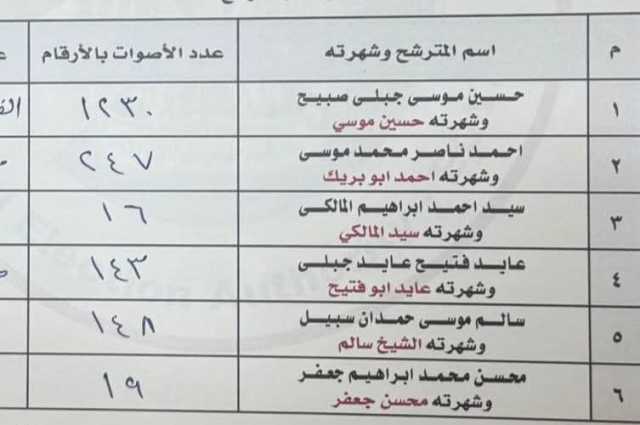 م اسم المترشح وشهرته عدد الأصوات بالأرقام
١ حسين موسى جبلى صبيح ١٢٣٠
وشهرته حسين موسي
٢ احمد ناصر محمد موسى ٢٤٧
وشهرته احمد ابو بريك
٣ سيد احمد ابراهيم المالكى ١٦
وشهرته سيد المالكي
٤ عايد فتيح عايد جبلى ١٤٣
وشهرته عايد ابو فتيح
٥ سالم موسى حمدان سبيل ١٤٨
وشهرته الشيخ سالم
٦ محسن محمد ابراهيم جعفر ١٩
وشهرته محسن جعفر